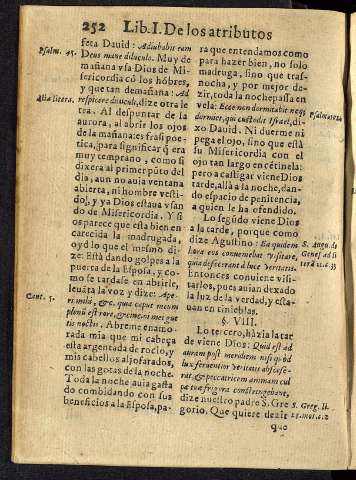 252 Lib. I. De los atributos
Psalm. 45.
feta Dauid: Adiubabit eam
Deus mane diluculo. Muy de
mañana vía Dios de Mi-
sericordia cõ los hõbres,
y que tan demañana: Ad
Alia litera.
respicere diuculi, dize otra le
tra. Al despuntar de la
aurora, al abrir los ojos
de la mañana: es frasi poe-
tica, para significar q̃ era
muy temprano, como si
dixera al primer pũto del
dia, aun no auia ventana
abierta, ni hombre vesti-
do, y ya Dios estaua vsan
do de Misericordia. Y si
os parece que esta bien en
carecida la madrugada,
oyd lo que el mesmo di-
ze: Està dando golpes a la
puerta de la Esposa, y co-
mo se tardasse en abrirle,
leuãta la voz y dize: Ape-
Cant. 5.
ri mihi, &c. quia caput meum
plenũ est rore, & cincinni mei gut
tis noctis. Abreme enamo-
rada mia que mi cabeça
està argentada de rocio, y
mis cabellos aljofarados,
con las gotas de la noche.
Toda la noche auia gasta
do combidando con sus
beneficios a la Esposa, pa-
ra que entendamos como
para hazer bien, no solo
madruga, sino que tras-
nocha, y por mejor de-
zir, toda la noche passa en
vela: Ecce non dormitabit neq;
dormiet, qui custodit Israel, di-
Psalm. 120.
xo Dauid. Ni duerme ni
pega el ojo, sino que està
su Misericordia con el
ojo tan largo en cẽtinela:
pero a castigar viene Dios
tarde, allà a la noche, dan-
do espacio de penitencia,
a quien le ha ofendido.
Lo segũdo viene Dios
a la tarde, porque como
dize Agustino: Ea quidem
S. Aug. de
hora eos conueniebat visitare,
Genes. ad lit
qui defecerant à luce veritatis.
Entonces conuiene visi-
tarlos, pues auian dexado
la luz de la verdad, y esta-
uan en tinieblas.
§. VIII.
Lo tercero, hàzia la tar
de viene Dios: Quid est ad
auram post meridiem nisi quòd
lux feruentior veritatis abscesse-
rat, & peccatricem animam cul
pæ suæ frigora constringebant,
dize nuestro padre S. Gre
S. Greg. li.
gorio. Que quiere dezir
que